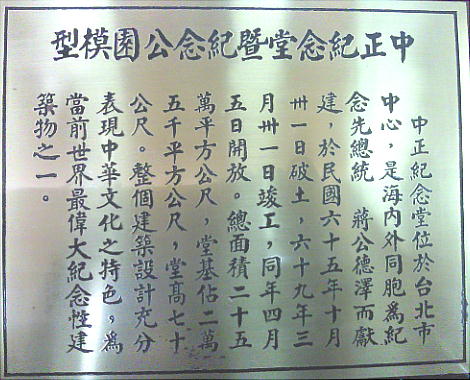 中正紀念堂暨紀念公園模型
中正紀念堂位於台北市
中心，是海內外同胞為紀
念先總統 蔣公德澤而獻
建，於民國六十五年十月
卅一日破土，六十九年三
月卅一日竣工，同年四月
五日開放。總面積二十五
萬平方公尺，堂基佔二萬
五千平方公尺，堂高七十
公尺。整個建築設計充分
表現中華文化之特色，為
當前世界最偉大紀念性建
築物之一。